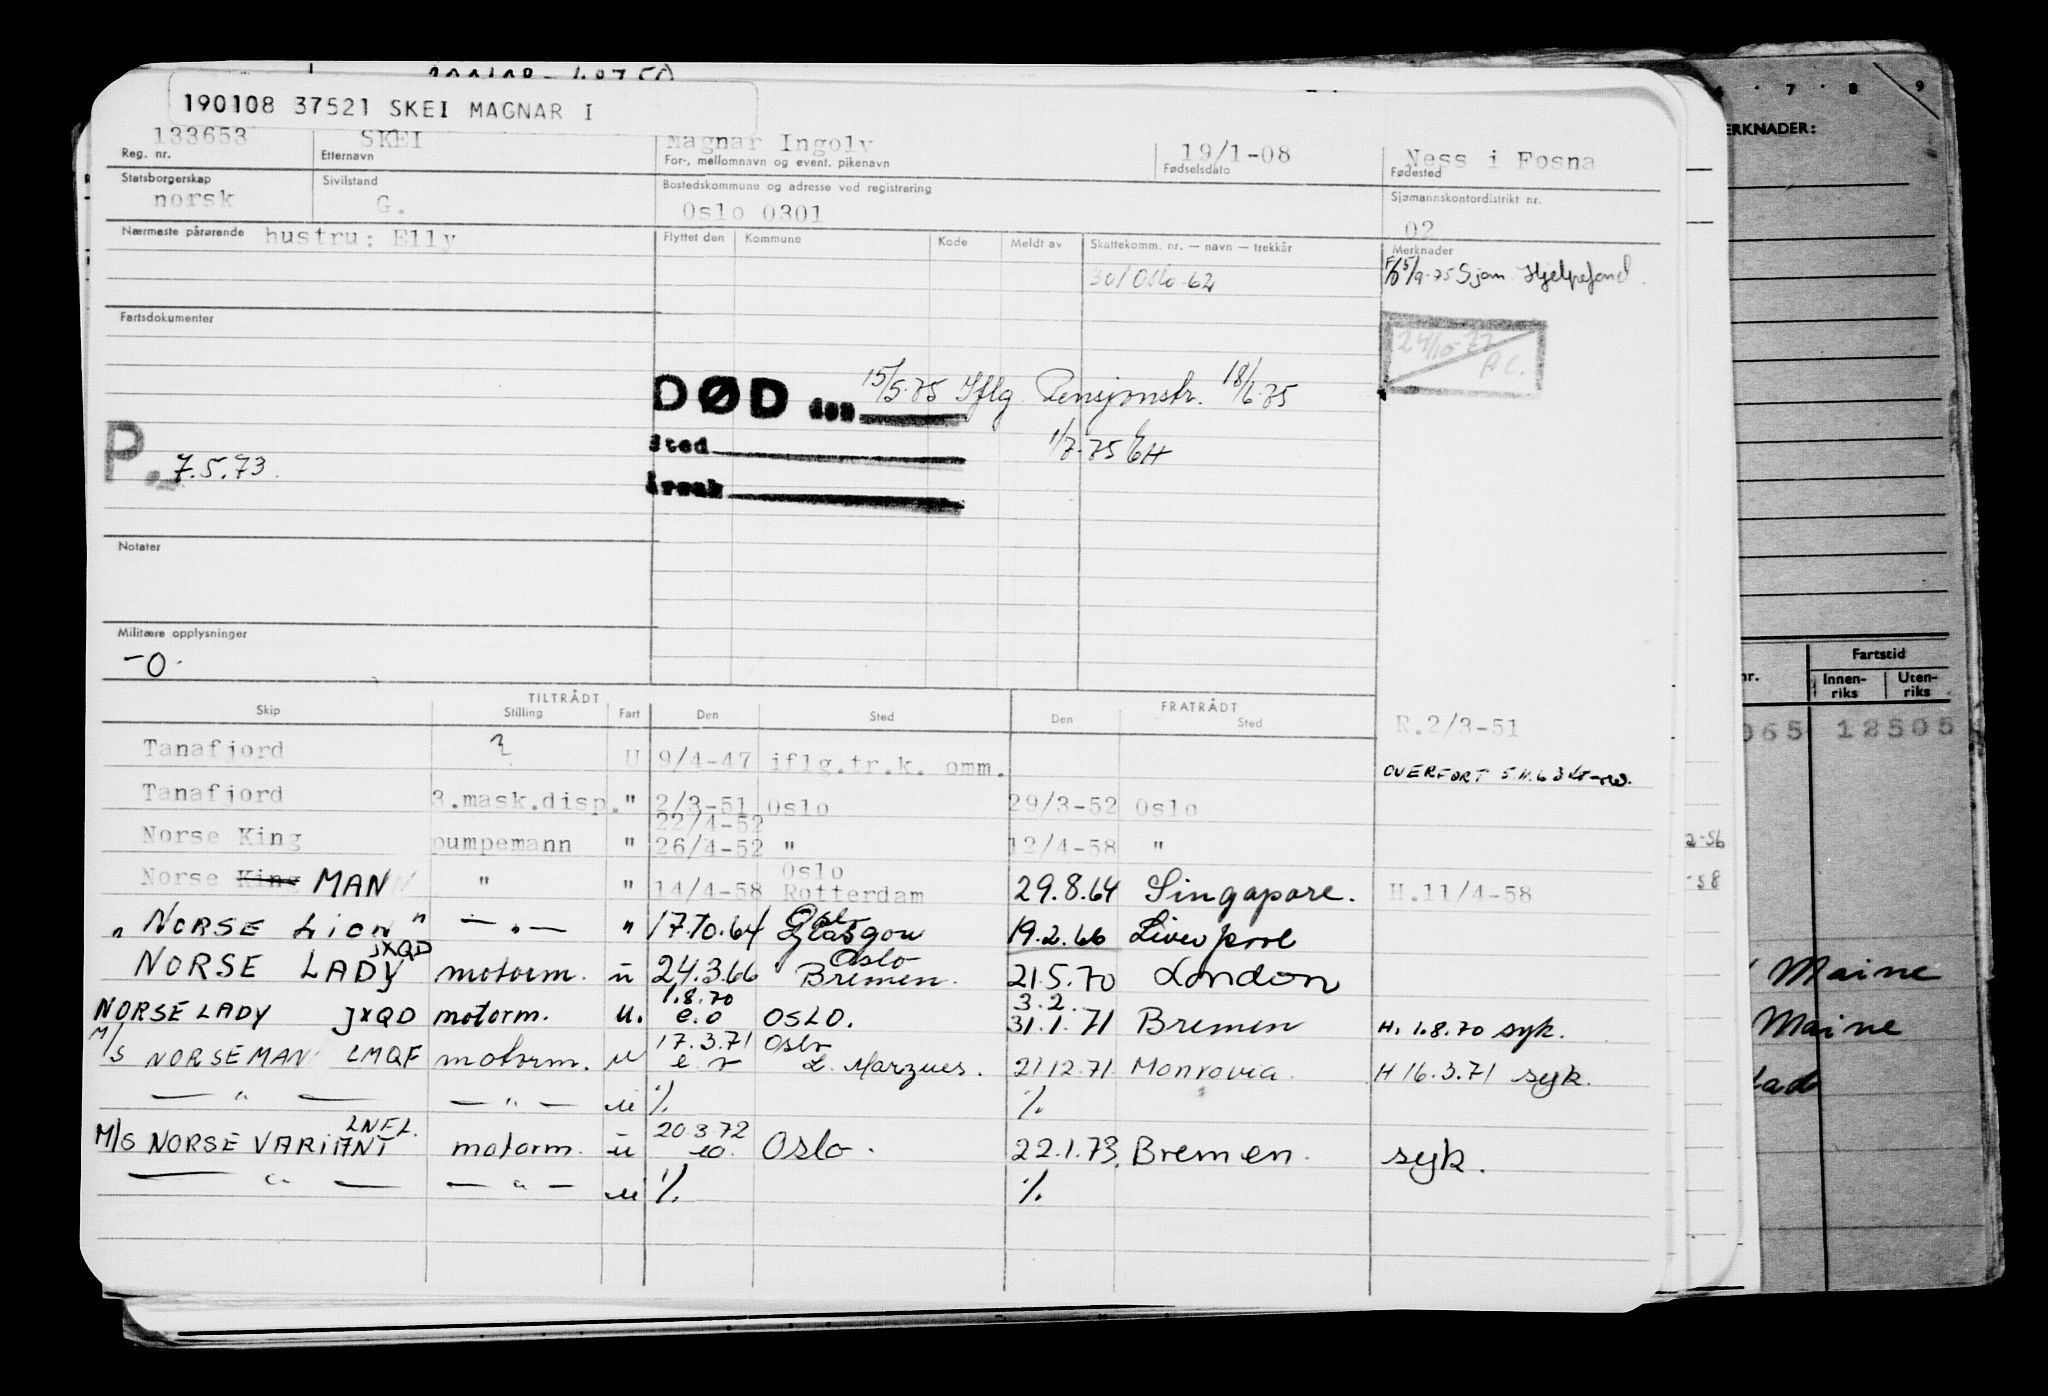 190108 37521 SKEI MAGNAR I
133653 SKEI Magnar Ingolv 19/1-08 Ness i Fosna
Reg. nr. Etternavn For-, mellomnavn og event. pikenavn Fødselsdato Fødested
Statsborgerskap Sivilstand Bostedskommune og adresse ved registrering Sjømannskontordistrikt nr.
norsk G. Oslo 0301 02
Nærmeste pårørende hustru: Elly Flyttet den Kommune Kode Meldt av Skattekomm. nr. — navn — trekkår Merknader
301 Oslo 62 5/9-75 Sjøm. Hjelpefond.
Fartsdokumenter
24/10-77
DØD den 15/5-75 Iflg Pensjonstr. 18/6-75
Sted 1/7-75 EH
P. 7.5.73
Årsak
Notater
Militære opplysninger
-0-
TILTRÅDT FRATRÅDT
Skip Stilling Fart Den Sted Den Sted
R.2/3-51
Tanafjord ? U 9/4-47 iflg.tr.k. omm.
OVERFØRT 5.11.63
Tanafjord 3.mask.disp. " 2/3-51 Oslo 29/3-52 Oslo
22/4-52
Norse King pumpemann " 26/4-52 " 12/4-58 "
Oslo
Norse King MAN " " 14/4-58 Rotterdam 29.8.64 Singapore. H.11/4-58
Oslo
" NORSE LION " — " — " 17.10.64 Glasgow 19.2.66 Liverpool
JXQD Oslo
NORSE LADY motorm. u 24.3.66 Bremen. 21.5.70 London
1.8.70 3.2.
NORSE LADY JXQD motorm. u. e.o OSLO. 31.1.71 Bremen H. 1.8.70 syk.
17.3.71 Oslo
M/S NORSE MAN LMQF motorm. u L. Marques. 21.12.71 Monrovia. H 16.3.71 syk.
— " — — " — u % %
LNFL. 20.3.72
M/S NORSE VARIANT motorm. u eo. Oslo. 22.1.73. Bremen. syk.
— " — — " — u % %
7 8 9
MERKNADER:
Fartstid
nr. Innen-riks Uten-riks
065 12505
2-56
-58
Maine
Maine